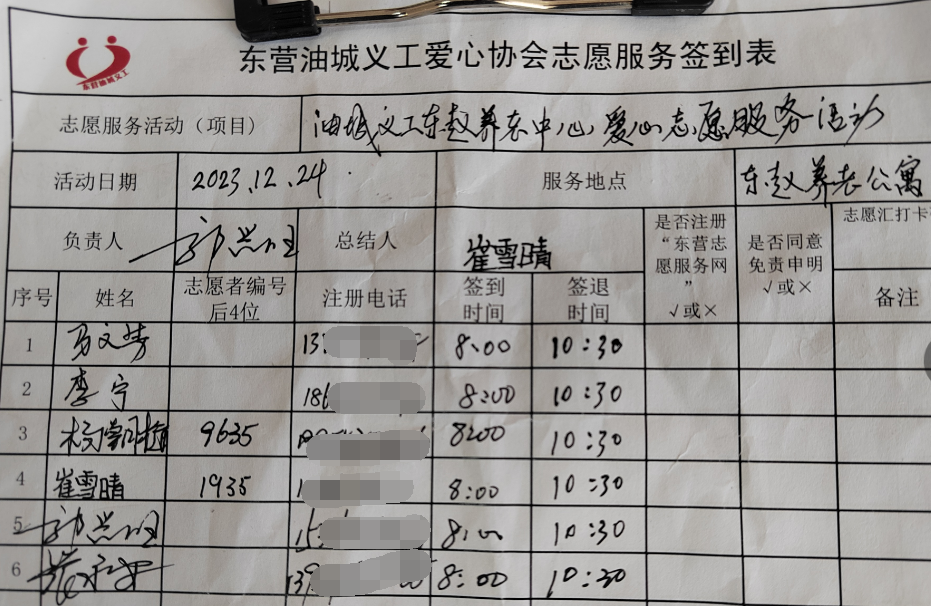 东营油城义工
东营油城义工爱心协会志愿服务签到表
志愿服务活动（项目） 油城义工东赵养老中心爱心志愿服务活动
活动日期 2023.12.24 服务地点 东赵养老公寓
负责人 总结人 崔雪晴 是否注册“东营志愿服务网”√或× 是否同意免责申明√或× 志愿汇打卡
序号 姓名 志愿者编号后4位 注册电话 签到时间 签退时间 备注
1 13 8:00 10:30
2 李宁 186 8:00 10:30
3 9635 8:00 10:30
4 崔雪晴 1935 1 8:00 10:30
5 15 8:00 10:30
6 139 8:00 10:30